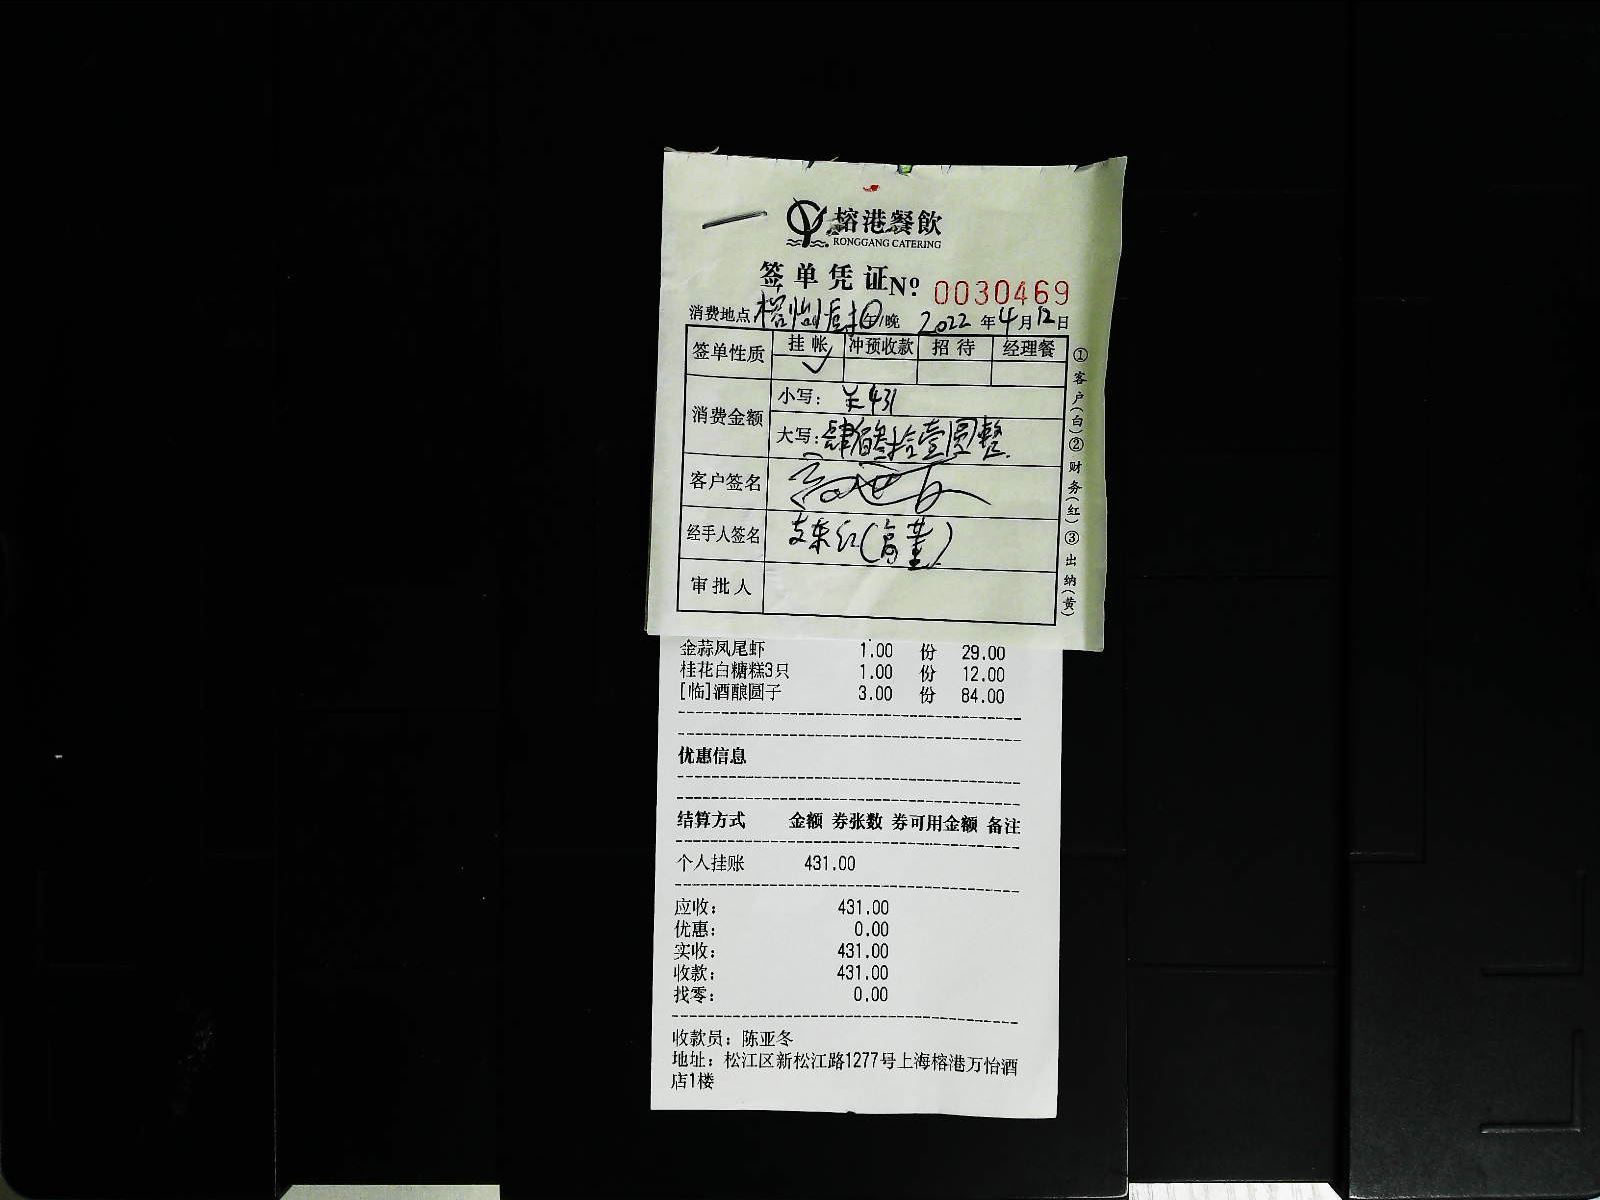 榕港餐飲
RONGGANG CATERING
签单凭证 Nº 0030469
消费地点 午/晚 2022年4月12日
签单性质 挂帐 冲预收款 招待 经理餐
✓
消费金额 小写: ¥431
大写: 肆佰叁拾壹圆整
客户签名
经手人签名 红(高董)
审批人
①客户(白)②财务(红)③出纳(黄)
金蒜凤尾虾 1.00 份 29.00
桂花白糖糕3只 1.00 份 12.00
[临]酒酿圆子 3.00 份 84.00
优惠信息
结算方式 金额 券张数 券可用金额 备注
个人挂账 431.00
应收: 431.00
优惠: 0.00
实收: 431.00
收款: 431.00
找零: 0.00
收款员: 陈亚冬
地址: 松江区新松江路1277号上海榕港万怡酒
店1楼